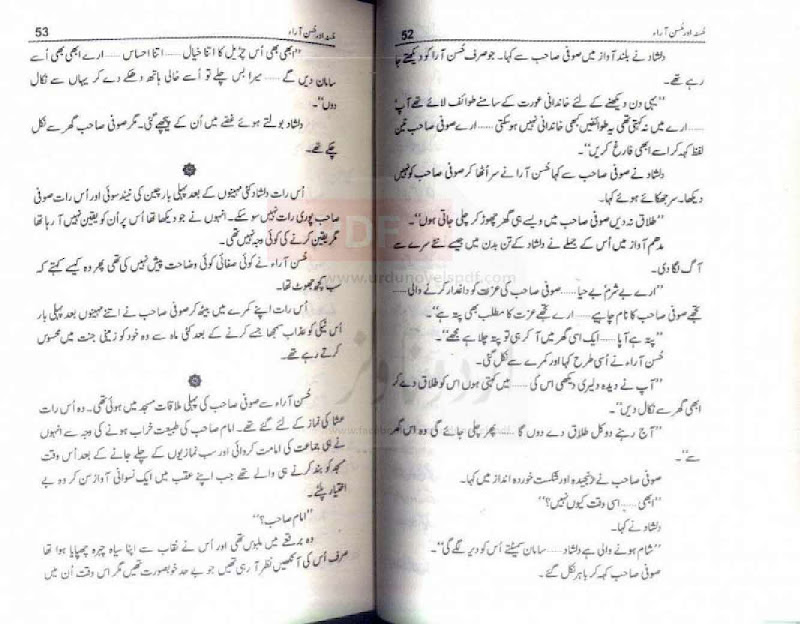 52
حُسنہ اور حُسن آراء
دلشاد نے بلند آواز میں صوفی صاحب سے کہا۔ جو صرف حُسن آرا کو دیکھتے جا
رہے تھے۔
"یہی دن دیکھنے کے لئے خاندانی عورت کے سامنے طوائف لائے تھے آپ
...... ارے میں نہ کہتی تھی یہ طوائفیں کبھی خاندانی نہیں ہو سکتی ...... ارے صوفی صاحب تین
لفظ کہہ کر اسے ابھی فارغ کریں"۔
دلشاد نے صوفی صاحب سے کہا حُسن آرا نے سر اُٹھا کر صوفی صاحب کو نہیں
دیکھا۔ سر جھکائے ہوئے کہا۔
"طلاق نہ دیں صوفی صاحب میں ویسے ہی گھر چھوڑ کر چلی جاتی ہوں"۔
مدھم آواز میں اُس کے جملے نے دلشاد کے تن بدن میں جیسے نئے سرے سے
آگ لگا دی۔
"ارے بے شرم بے حیا...... صوفی صاحب کی عزت کو داغدار کرنے والی
تجھے صوفی صاحب کا نام چاہیے...... ارے تجھے عزت کا مطلب بھی پتہ ہے"۔
"پتہ ہے آپا...... ایک اسی گھر میں آ کر ہی تو پتہ چلا ہے مجھے"۔
حُسن آرا نے اُسی طرح کہا اور کمرے سے نکل گئی۔
"آپ نے دیدہ دلیری دیکھی اس کی...... میں کہتی ہوں اس کو طلاق دے کر
ابھی گھر سے نکال دیں"۔
"آج رہنے دو کل طلاق دے دوں گا...... پھر چلی جائے گی وہ اس گھر
سے"۔
صوفی صاحب نے رنجیدہ اور شکست خوردہ انداز میں کہا۔
"ابھی...... اسی وقت کیوں نہیں؟"
دلشاد نے کہا۔
"شام ہونے والی ہے دلشاد...... سامان سمیٹتے اُس کو دیر لگے گی"۔
صوفی صاحب کہہ کر باہر نکل گئے۔
53
حُسنہ اور حُسن آراء
"ابھی بھی اُس چڑیل کا اتنا خیال...... اتنا احساس...... ارے ابھی بھی اُسے
سامان دیں گے...... میرا بس چلے تو اُسے خالی ہاتھ دھکے دے کر یہاں سے نکال
دوں"۔
دلشاد بولتے ہوئے غصے میں اُن کے پیچھے گئی۔ مگر صوفی صاحب گھر سے نکل
چکے تھے۔
اُس رات دلشاد کئی مہینوں کے بعد پہلی بار چین کی نیند سوئی اور اُس رات صوفی
صاحب پوری رات نہیں سو سکے۔ انہوں نے جو دیکھا تھا اُس پر اُن کو یقین نہیں آ رہا تھا
مگر یقین نہ کرنے کی کوئی وجہ نہیں تھی۔
حُسن آراء نے کوئی صفائی کوئی وضاحت پیش نہیں کی تھی پھر وہ کیسے کہتے کہ
سب کچھ جھوٹ تھا۔
اُس رات اپنے کمرے میں بیٹھ کر صوفی صاحب نے اتنے مہینوں بعد پہلی بار
اُس نیکی کو عذاب سمجھا جسے کرنے کے بعد کئی ماہ سے وہ خود کو زمینی جنت میں محسوس
کرتے رہے تھے۔
حُسن آراء سے صوفی صاحب کی پہلی ملاقات مسجد میں ہوئی تھی۔ وہ اُس رات
عشا کی نماز کے لئے گئے تھے۔ امام صاحب کی طبیعت خراب ہونے کی وجہ سے انہوں
نے ہی جماعت کی امامت کروائی اور سب نمازیوں کے چلے جانے کے بعد اُس وقت
مسجد کو بند کرنے ہی والے تھے جب اپنے عقب میں ایک نسوانی آواز سن کر وہ بے
اختیار پلٹے۔
"امام صاحب؟"
وہ برقعے میں ملبوس تھی اور اُس نے نقاب سے اپنا سیاہ چہرہ چھپایا ہوا تھا
صرف اُس کی آنکھیں نظر آ رہی تھیں جو بے حد خوبصورت تھیں مگر اس وقت اُن میں
PDF
www.urdunovelspdf.com